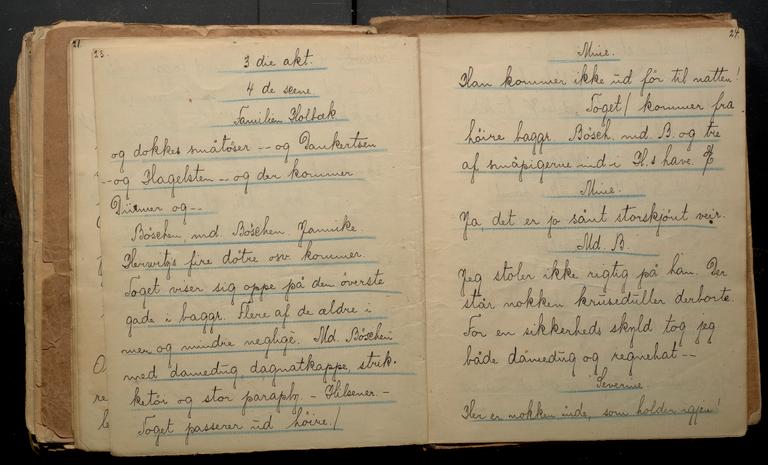 21.
23.
3 die akt.
4 de scene
Familien Holbæk
og dokkes småtøser -- og Dankertsen
-- og Hagelsten -- og der kommer
Dürmer og --
Böschen, md. Böschen. Jannike
Herwitz's fire døtre osv. kommer.
Toget viser sig oppe på den øverste
gade i baggr. Flere af de ældre i
mer og mindre negligé. Md. Böschen
med damedug, dagnatkappe, strik-
ketøi og stor paraply. - Hilsener. -
Toget passerer ud høire./
24.
Mine.
Han kommer ikke ud før til natten!
Toget/ kommer fra
høire baggr. Bösch. md. B. og tre
af småpigerne ind i H.s have.
Mine.
Ja, det er jo sånt storskjønt veir.
Md. B.
Jeg stoler ikke rigtig på han. Der
står nokken kruseduller derborte.
For en sikkerheds skyld tog jeg
både damedug og regnehat --
Severine.
Her er nokken inde, som holder igjen!